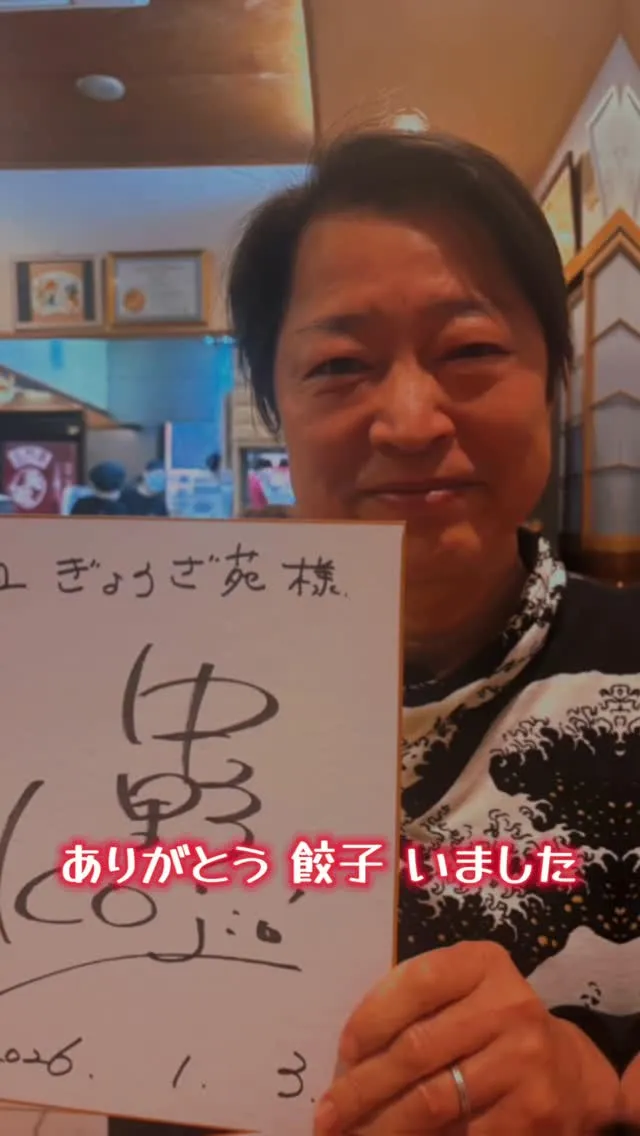 ぎょうざ苑様.
中野
ありがとう 餃子 いました
2026. 1. 3.